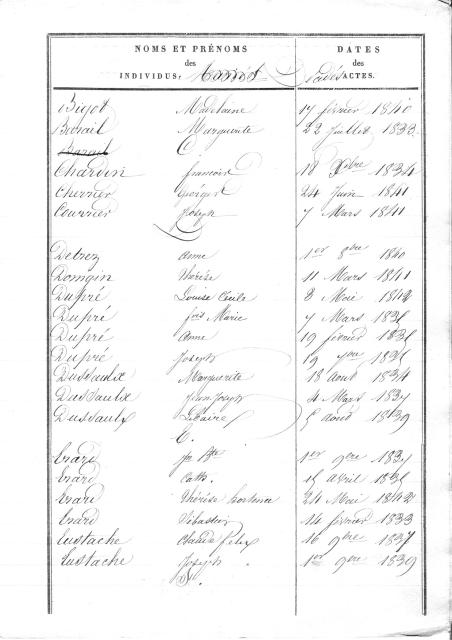 NOMS ET PRÉNOMS DATES
des des
INDIVIDUS. ACTES.
Bigot Madelaine 17 février 1840
Burail Marguerite 22 Juillet 1833
C.
Chardin francois 18 Xbre 1834
Chevrier Georges 24 Juin 1841
Courrier Joseph 7 Mars 1841
Detrez Anne 1er 8bre 1840
Domgin thérèse 11 Mars 1841
Dupré Louise Cécile 3 Mai 1842
Dupré fois Marie 7 Mars 1835
Dupré Anne 19 février 1835
Dupré Joseph 19 1835
Dussaulx Marguerite 18 Aout 1834
Dussaulx Jean Joseph 4 Mars 1837
Dussaulx 5 Aout 1839
E.
Erard Jn Bte 1er 9bre 1835
Erard Cath. 15 Avril 1835
Erard thérèse hortence 24 Mai 1842
Erard Sébastien 14 février 1833
Eustache Claude felix 16 9bre 1837
Eustache Joseph 1er 9bre 1839